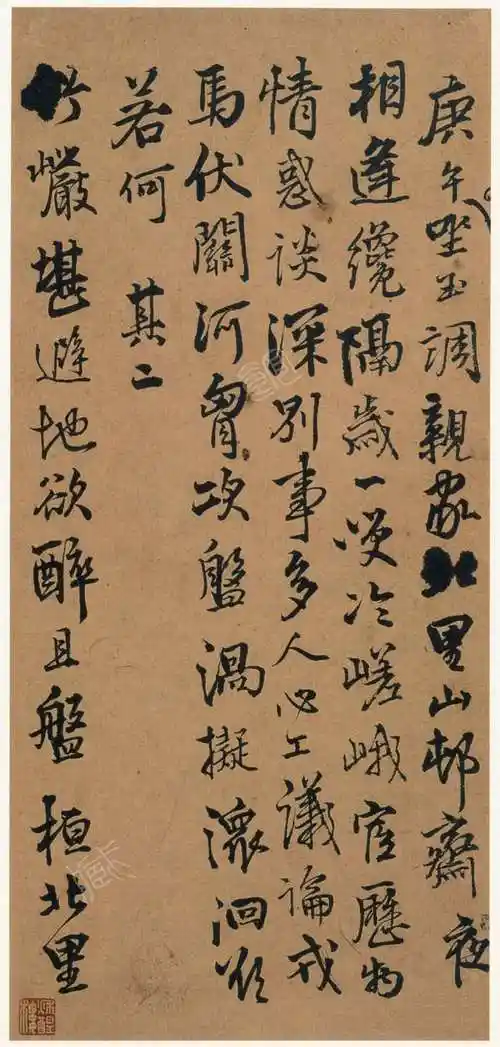 庚午坐玉調親家北里山邨齋夜
相逢纔隔歲一笑冷嵯峨宦歷物
情惑談深别事多人心工議論戎
馬伏關河胷次盤渦擬洄欲
若何 其二
巖堪避地欲醉且盤桓北里